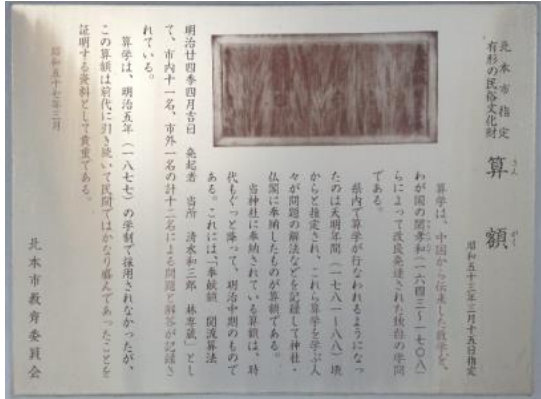 北本市指定
有形の民俗文化財
算額
さんがく
昭和五十三年三月十五日指定
算学は、中国から伝来した数学を、
わが国の関孝和(一六四三〜一七〇八)
らによって改良発達された独自の学問
である。
県内で算学が行なわれるようになっ
たのは天明年間(一七八一〜八八)頃
からと推定され、これら算学を学ぶ人
々が問題の解法などを記録して神社・
仏閣に奉納したものが算額である。
当神社に奉納されている算額は、時
代もぐっと降って、明治中期のもので
ある。これには、「奉献額 関流算法
明治廿四季四月吉日 発起者 当所 清水和三郎 林専蔵」とし
て、市内十一名、市外一名の計十二名による問題と解答が記録さ
れている。
算学は、明治五年(一八七七)の学制で採用されなかったが、
この算額は前代に引き続いて民間ではかなり盛んであったことを
証明する資料として貴重である。
昭和五十七年三月
北本市教育委員会